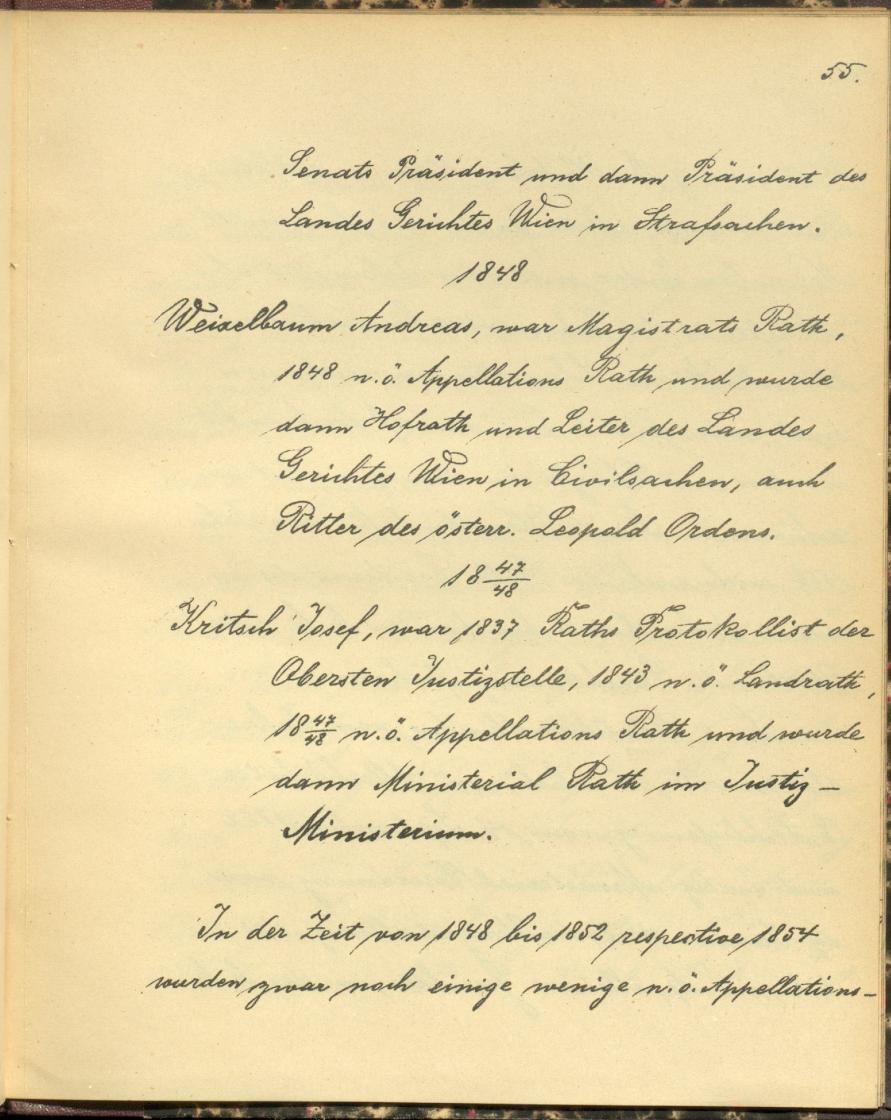 55.
Senats Präsident und dann Präsident des
Landes Gerichtes Wien in Strafsachen.
1848
Weixelbaum Andreas, war Magistrats Rath,
1848 n.ö. Appellations Rath und wurde
dann Hofrath und Leiter des Landes
Gerichtes Wien in Civilsachen, auch
Ritter des österr. Leopold Ordens.
18 47/48
Kritsch Josef, war 1837 Raths Protokollist der
Obersten Justizstelle, 1843 n.ö. Landrath,
18 47/48 n.ö. Appellations Rath und wurde
dann Ministerial Rath im Justiz-
Ministerium.
In der Zeit von 1848 bis 1852 respective 1854
wurden zwar noch einige wenige n.ö. Appellations-